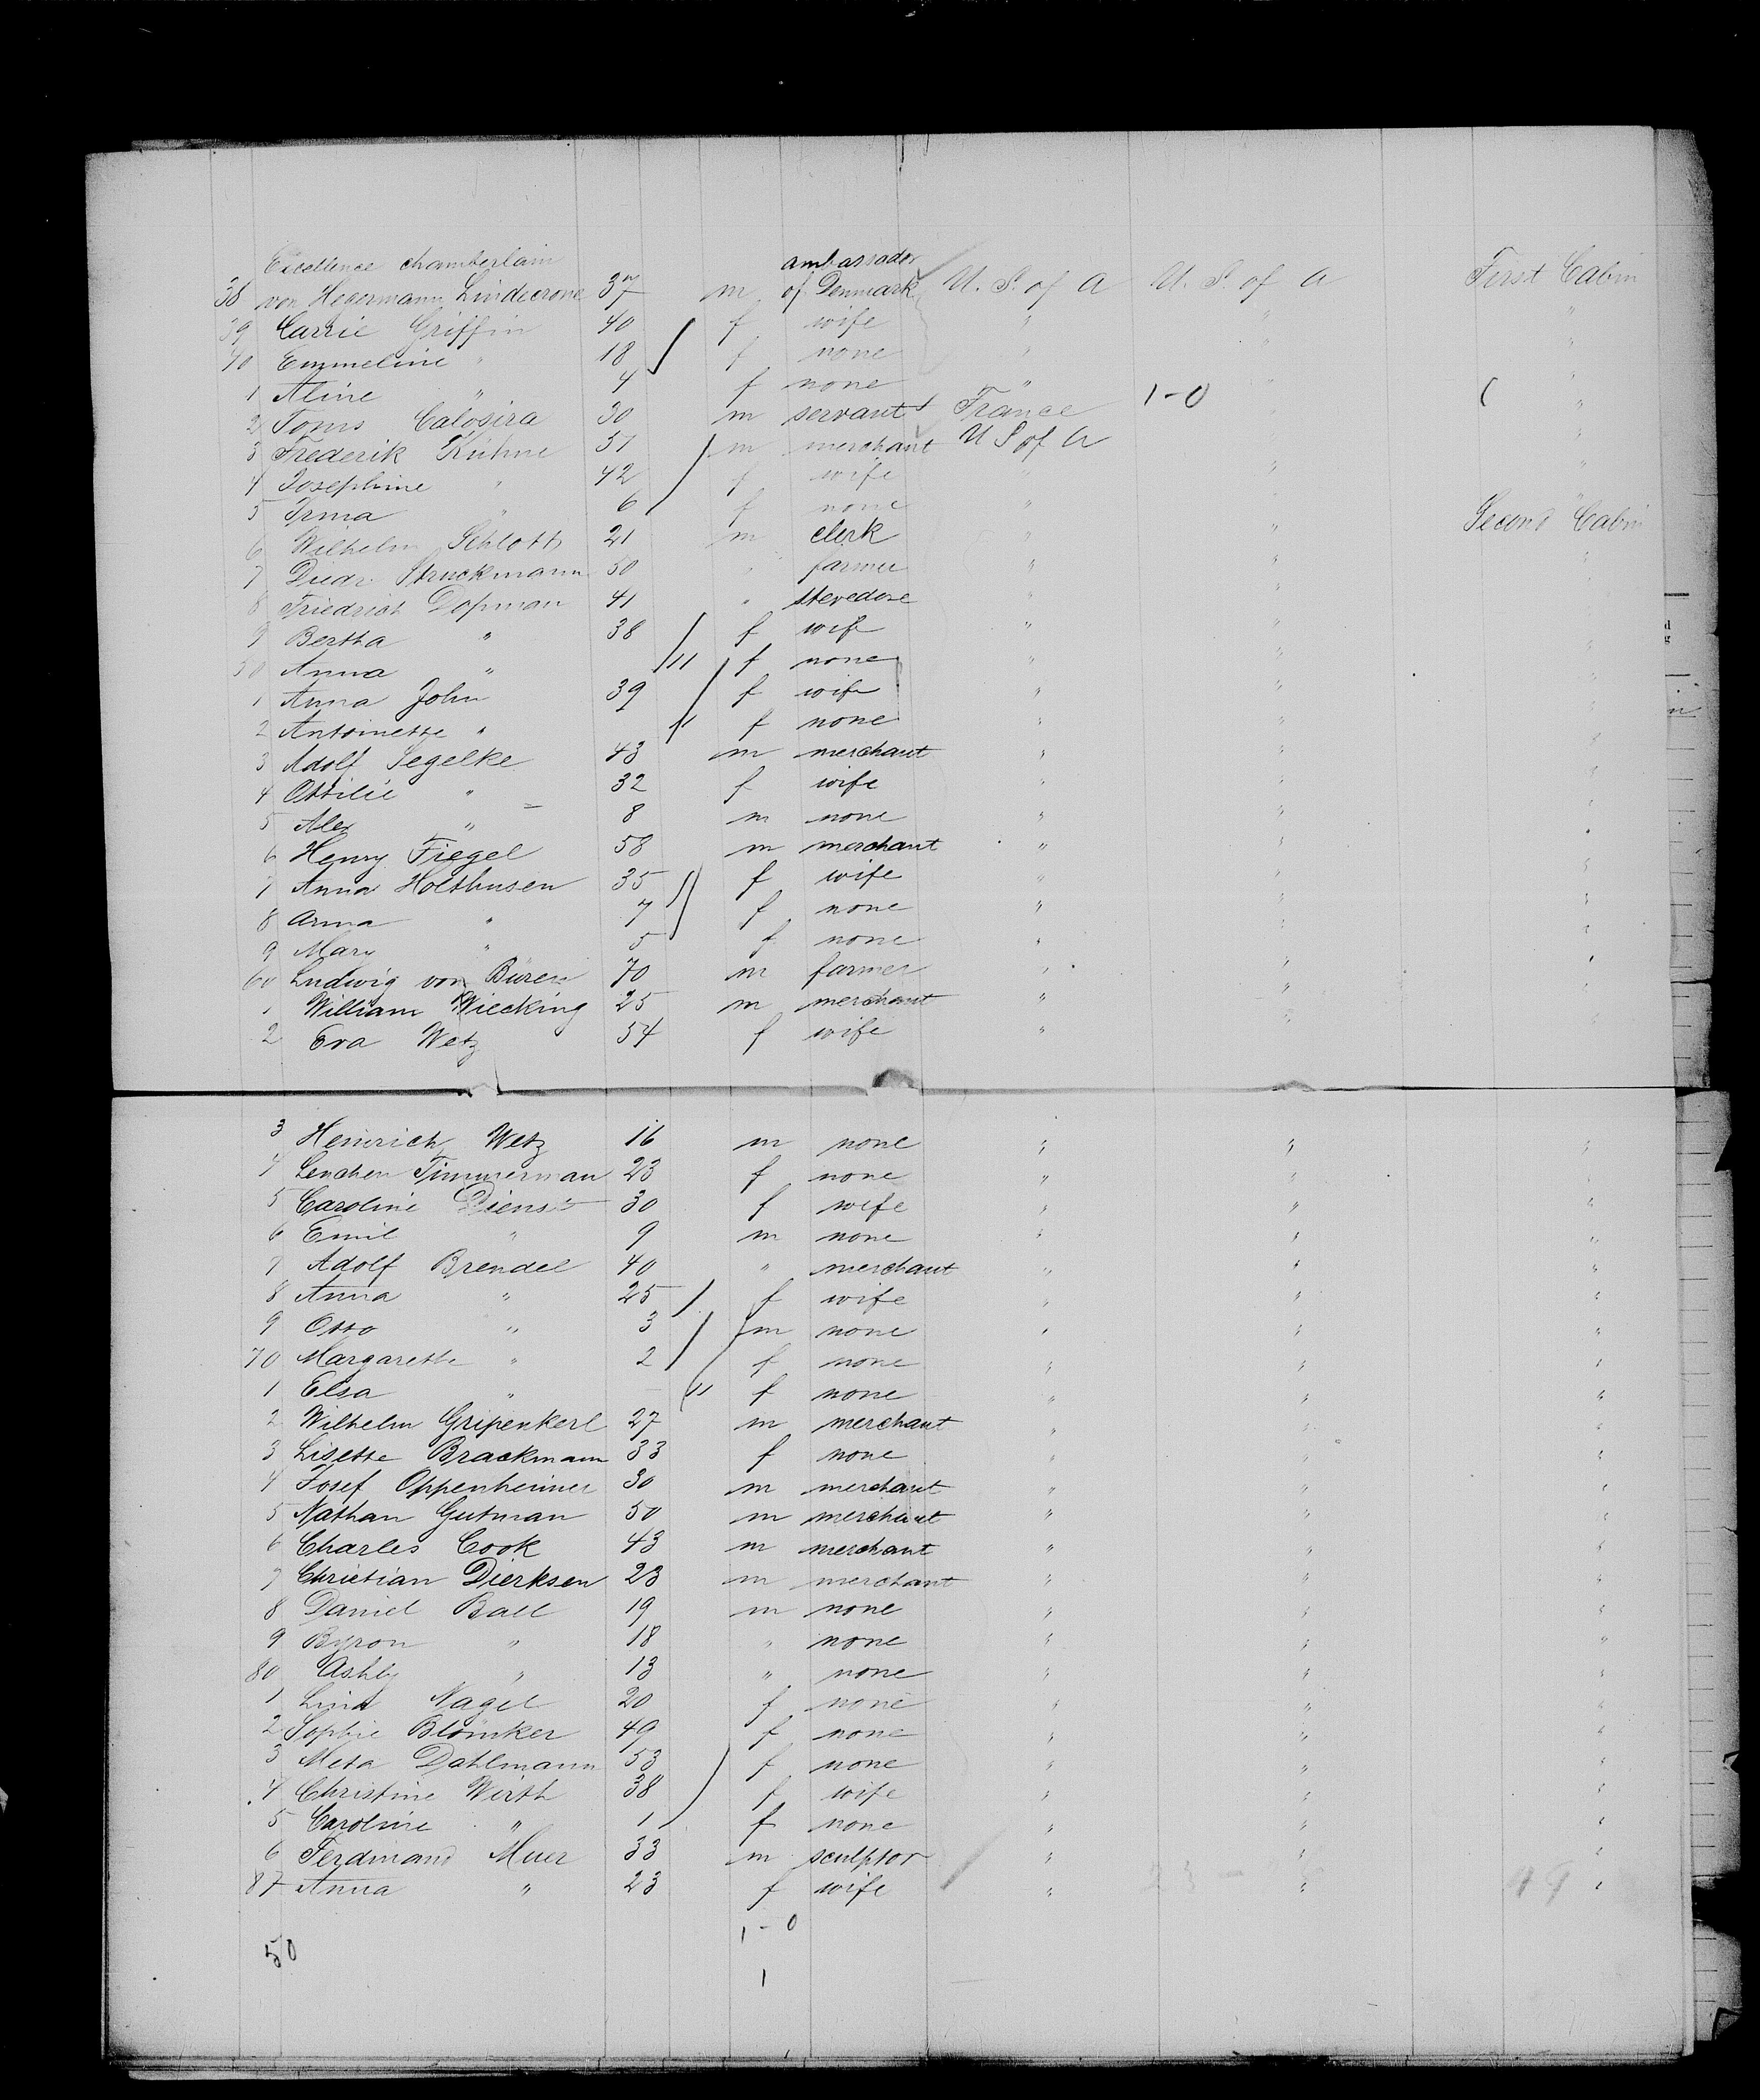 Excellence chamberlain ambassador
38 von Hegermann Lindecrone 37 m of Denmark U. S. of A U. S. of A First Cabin
39 Carrie Griffin 40 f wife " " "
40 Emmeline " 18 f none " " "
1 Aline " 4 f none " " "
2 Calosira 30 m servant France 1-0 "
3 Frederik Kühne 51 m merchant U S of A "
4 Josephine " 42 f wife " " "
5 Irma " 6 f none "
6 Wilhelm Schlott 21 m clerk " " Second Cabin
7 Diedr. Struckmann 50 " farmer " " "
8 Friedrich Dopman 41 " stevedore " "
9 Bertha " 38 f wife " "
50 Anna " 11 f none " "
1 Anna John 39 f wife " " "
2 Antoinette " 11 f none " " "
3 Adolf Segelke 43 m merchant " " "
4 Ottilie " 32 f wife " " "
5 Alex " 8 m none " " "
6 Henry Fiegel 58 m merchant " " "
7 Anna Holthusen 35 f wife " " "
8 Anna " 7 f none " " "
9 Mary " 5 f none " " "
60 Ludwig von Büren 70 m farmer " " "
1 William Wiecking 25 m merchant " " "
2 Eva Wetz 54 f wife " " "
3 Heinrich Wetz 16 m none " " "
4 Lenchen Timmerman 23 f none " " "
5 Caroline Dienst 30 f wife " " "
6 Emil " 9 m none " " "
7 Adolf Brendel 40 " merchant " " "
8 Anna " 25 f wife " " "
9 Otto " 3 m none " " "
70 Margarethe " 2 f none " " "
1 Elsa " 11 f none " " "
2 Wilhelm Gripenkerl 27 m merchant " " "
3 Lisette Brackmann 33 f none " " "
4 Josef Oppenheimer 30 m merchant " " "
5 Nathan Gutman 50 m merchant " " "
6 Charles Cook 43 m merchant " " "
7 Christian Dierksen 23 m merchant " " "
8 Daniel Ball 19 m none " " "
9 Byron " 18 " none " " "
80 Ashly " 13 " none " " "
1 Nagel 20 f none " " "
2 Sophie Blömker 49 f none " " "
3 Meta Dahlmann 53 f none " " "
4 Christine Wirth 38 f wife " " "
5 Caroline " 1 f none " " "
6 Ferdinand Muer 33 m sculptor " " "
87 Anna " 23 f wife " 23 - " 49 "
1-0
50
1